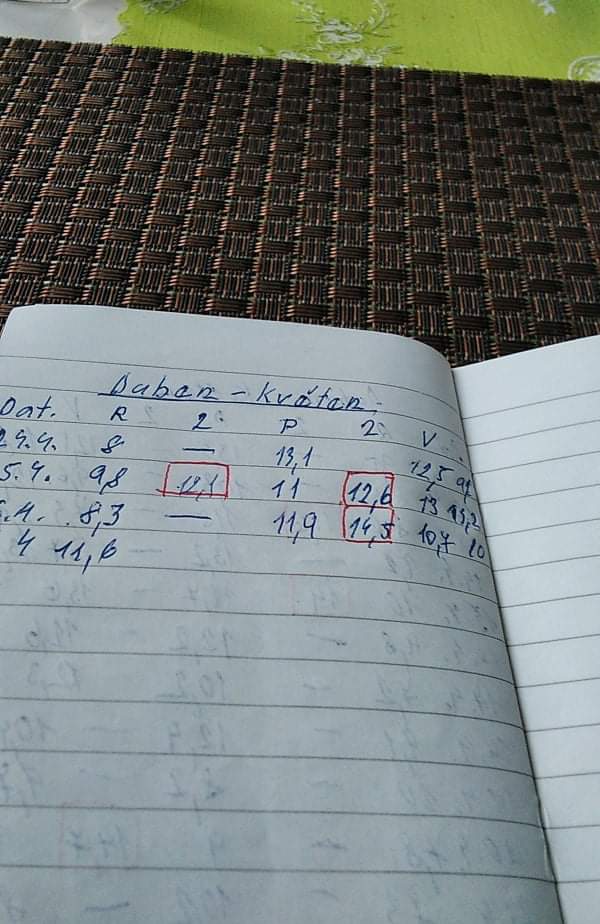 Duben - Květen
Dat. R 2. P 2. V
24.4. 8 — 13,1 12,5
5.4. 9,8 12,1 11 12,6 13 13,2
.4. 8,3 — 11,9 14,5 10,7 10
4 11,6